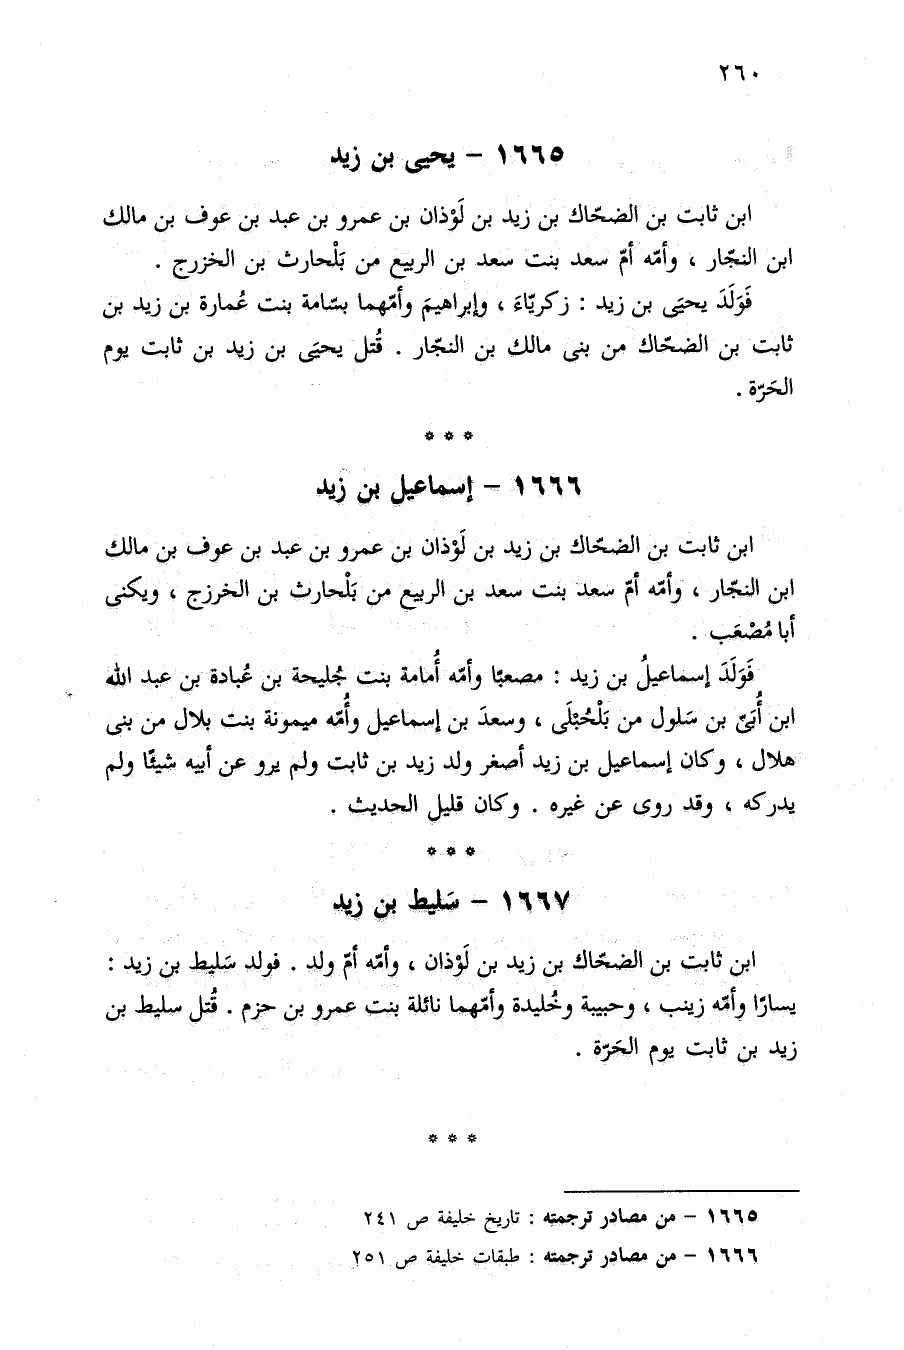 ٢٦٠
١٦٦٥ – يحيى بن زيد
ابن ثابت بن الضحّاك بن زيد بن لَوْذان بن عمرو بن عبد بن عوف بن مالك
ابن النجّار ، وأمّه أمّ سعد بنت سعد بن الربيع من بَلْحارث بن الخزرج .
فَوَلَدَ يحيَى بن زيد : زكريّاءَ ، وإبراهيمَ وأمّهما بسّامة بنت عُمارة بن زيد بن
ثابت بن الضحّاك من بنى مالك بن النجّار . قُتل يحيَى بن زيد بن ثابت يوم
الحَرّة .
* * *
١٦٦٦ – إسماعيل بن زيد
ابن ثابت بن الضحّاك بن زيد بن لَوْذان بن عمرو بن عبد بن عوف بن مالك
ابن النجّار ، وأمّه أمّ سعد بنت سعد بن الربيع من بَلْحارث بن الخرزج ، ويكنى
أبا مُصْعَب .
فَوَلَدَ إسماعيلُ بن زيد : مصعبًا وأمّه أُمامة بنت جُليحة بن عُبادة بن عبد الله
ابن أُبَىّ بن سَلول من بَلْحُبْلَى ، وسعدَ بن إسماعيل وأُمّه ميمونة بنت بلال من بنى
هلال ، وكان إسماعيل بن زيد أصغر ولد زيد بن ثابت ولم يرو عن أبيه شيئًا ولم
يدركه ، وقد روى عن غيره . وكان قليل الحديث .
* * *
١٦٦٧ – سَليط بن زيد
ابن ثابت بن الضحّاك بن زيد بن لَوْذان ، وأمّه أمّ ولد . فولد سَليط بن زيد :
يسارًا وأمّه زينب ، وحبيبة وخُليدة وأمّهما نائلة بنت عمرو بن حزم . قُتل سليط بن
زيد بن ثابت يوم الحَرّة .
* * *
١٦٦٥ – من مصادر ترجمته : تاريخ خليفة ص ٢٤١
١٦٦٦ – من مصادر ترجمته : طبقات خليفة ص ٢٥١